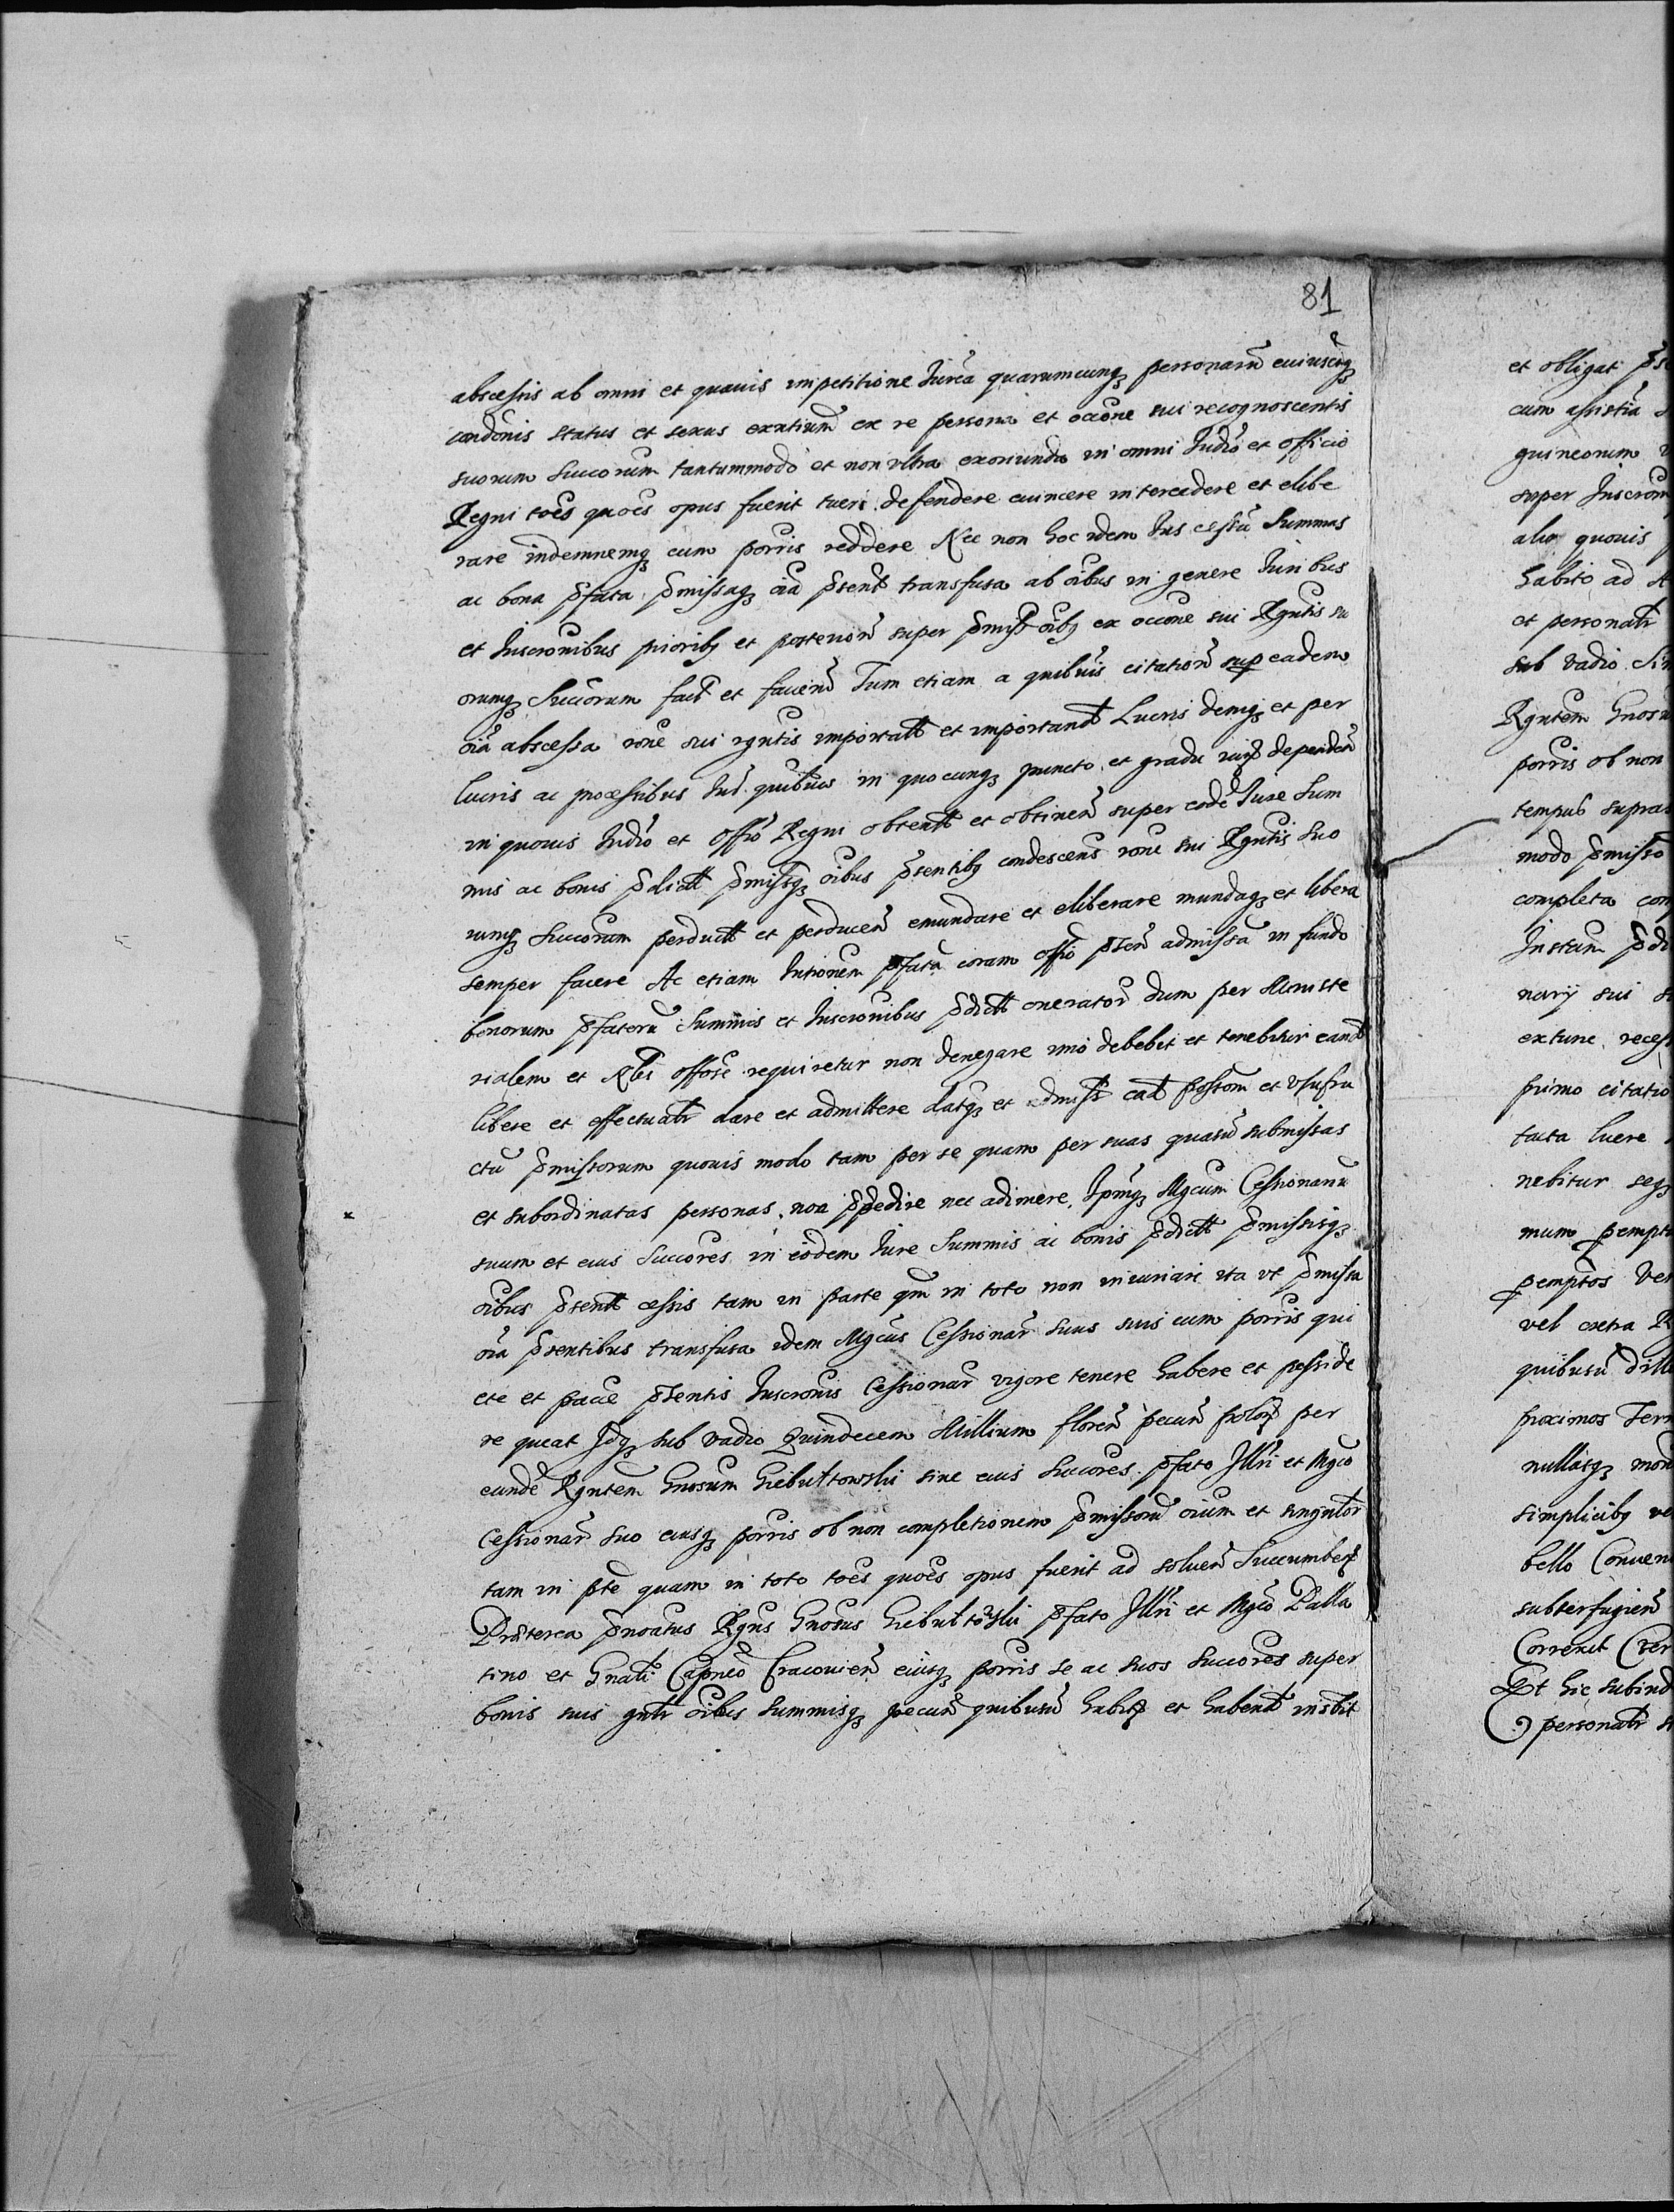 81
abscessis ab omni et quavis impetitione Jurea quarumcunq personaru cuiuscuq
condonis status et sexus exntium ex re persona et ocone sui recognoscentis
suorum Succorum tantummodo et non ultra exoriunda in omni Judio et officio
Regni toes quoes opus fuerit tueri defendere evincere intercedere et elibe
rare indemnemq cum porris reddere Nec non hoc idem Jus cessu Summas
ac bona pfata pmissaq oia psent transfusa ab oibus in genere Juribus
et Inscronibus priorib et posterior super pmiss oib ex occone sui Rgntis su
orumq Succorum fact et faciend Tum etiam a quibusvis citation sup eadem
oia abscessa rone sui rgntis importatt et importand Lucris deniq et per
lucris ac processibus Jur quibusvis in quocunq puncto et gradu iuris dependen
in quovis Judio et Offio Regni obtentt et obtinen super eode Jure Sum
mis ac bonis pdictt pmissq oibus psentib condescens rone sui Rgntis Suo
rumq Succorum perductt et perducen emundare et eliberare mundaq et libera
semper facere Ac etiam Intronem pfata coram offio psen admissa in fundo
bonorum pfatoru Summis et Inscronibus pdictt onerator dum per Ministe
rialem et Nbi offose requiretur non denegare imo debebit et tenebitur eand
libere et effectualr dare et admittere datq et admiss ead possom et Usufru
ctu pmissorum quovis modo tam per se quam per suas quasu submissas
et subordinatas personas non ppedire nec adimere Ipmq Mgcum Cessionariu
suum et eius Succores in eodem Jure Summis ac bonis pdictt pmissisq
oibus psentt cessis tam in parte qm in toto non iniuriari ita ut pmissa
oia psentibus transfusa idem Mgcus Cessionar Suus suis cum porris qui
ete et pacie psentis Inscronis Cessionar vigore tenere habere et posside
re queat Idq sub vadio Quindecem Millium floren pecun polor per
eunde Rgntem Gnosum Giebultowski sive eius Succores pfato Illri et Mgco
Cessionar suo eiusq porris ob non completionem pmissoru oium et singulor
tam in pte quam in toto toes quoes opus fuerit ad soluen Succumben
Prterea pnoatus Rgns Gnosus Giebultowski pfato Illri et Mgco Palla
tino et Gnali Capneo Cracovien eiusq porris se ac suos Succores super
bonis suis gnlr oibus Summisq pecun quibusu habit et habend instbit
et obligat
cum assistia
guineorum
super Inscrom
alio quovis
habito ad
et personalr
sub vadio
Rgntem Gnosu
porris ob non
tempus supras
modo pmisso
completa com
Instam pdi
narij sui
extunc recess
primo citatio
tacta luere
nebitur seq
mum pempt
pemptos Ver
vel extra R
quibusu dill
proximos Ter
nullasq mon
simplicib ve
bello Conven
subterfugien
Correnet Cver
Et hic Subind
personalr